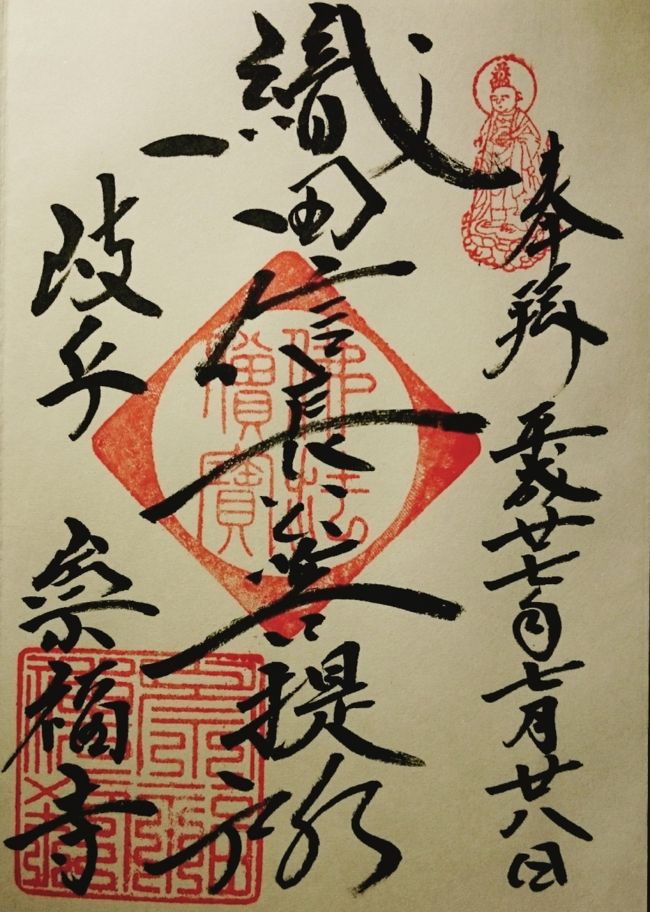 奉拜 平成廿七年七月廿八日
織田信長公菩提所
岐阜 崇福寺
佛法
僧寶